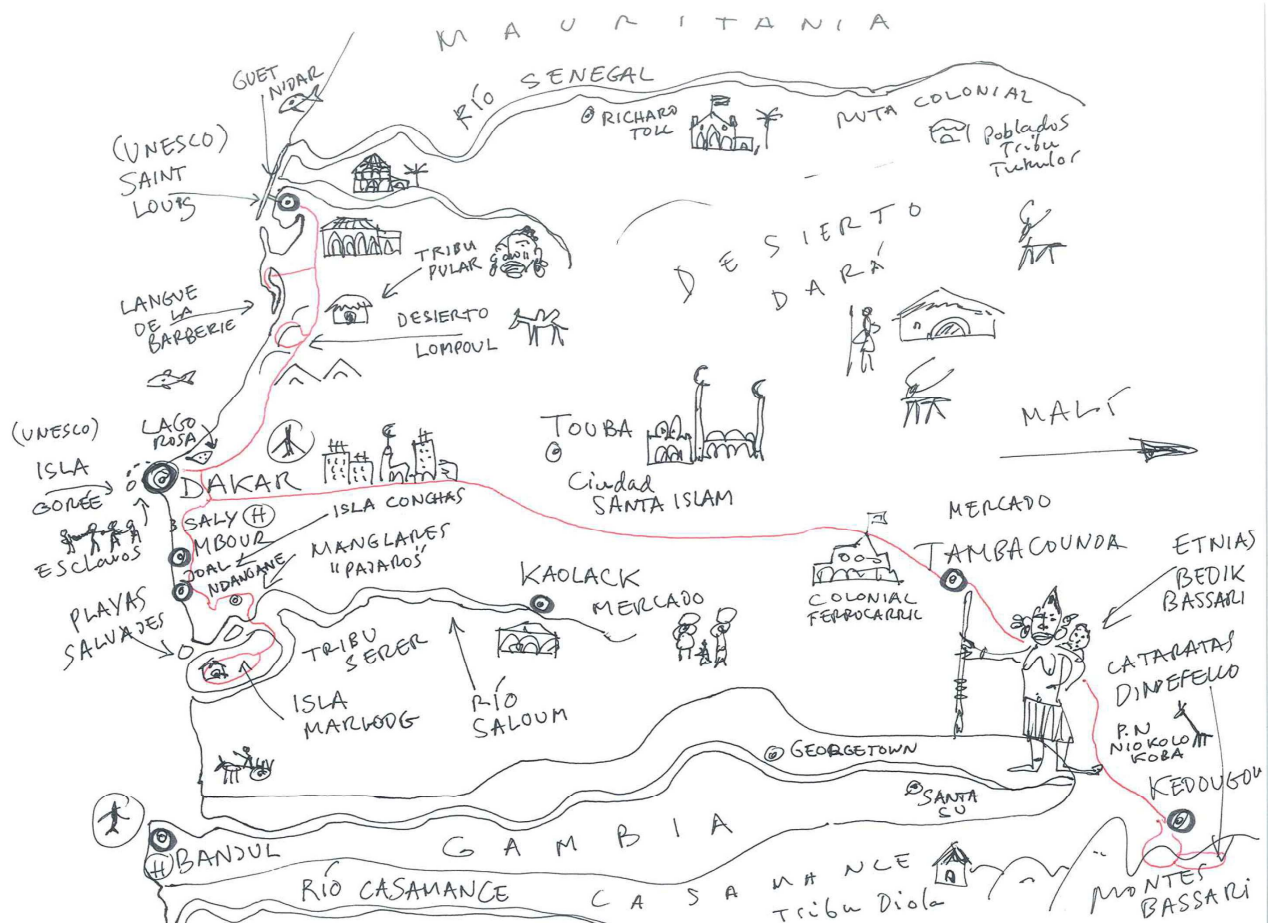 MAURITANIA
GUET
NIDAR
RÍO SENEGAL
RICHARD
TOLL
RUTA COLONIAL
Poblados
Tribu
Tukulor
(UNESCO)
SAINT
LOUIS
TRIBU
PULAR
DESIERTO
DARÁ
LANGUE
DE LA
BARBERIE
DESIERTO
LOMPOUL
MALÍ
(UNESCO)
ISLA
GORÉE
LAGO
ROSA
DAKAR
TOUBA
Ciudad
SANTA ISLAM
ESCLAVOS
SALY H
MBOUR
JOAL
NDANGANE
ISLA CONCHAS
MANGLARES
"PAJAROS"
MERCADO
TAMBACOUNDA
COLONIAL
FERROCARRIL
ETNIAS
BEDIK
BASSARI
PLAYAS
SALVAJES
KAOLACK
MERCADO
TRIBU
SERER
ISLA
MARLODG
RÍO
SALOUM
CATARATAS
DINDEFELLO
P.N
NIOKOLO
KOBA
KEDOUGOU
GEORGETOWN
SANTA
SU
H BANJUL
GAMBIA
RÍO CASAMANCE
CASAMANCE
Tribu Diola
MONTES
BASSARI